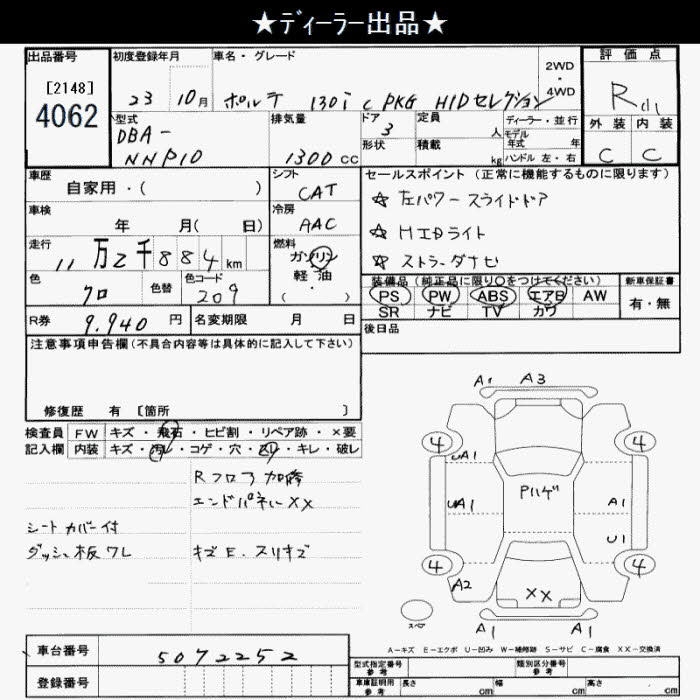 ★ディーラー出品★
出品番号
[2148]
4062
初度登録年月
23 10月
車名・グレード
ポルテ 130i C PKG HIDセレクション
2WD
・
4WD
評価点
R
外装 内装
C C
型式
DBA-
NNP10
排気量
1300 CC
ドア
3
形状
定員
人
積載
kg
ディーラー・並行
モデル
年式 年
ハンドル 左・右
車歴
自家用・( )
シフト
CAT
車検
年 月( 日)
冷房
AAC
走行
11万2千884km
燃料
ガソリン
軽油
( ・ )
色
クロ
色替
色コード
209
R券 9.940 円
名変期限 月 日
セールスポイント(正常に機能するものに限ります)
☆ 左パワースライドドア
☆ HIDライト
☆
装備品(純正品に限り〇をつけてください)
PS PW ABS エアB AW
SR ナビ TV カワ
新車保証書
有・無
後日品
注意事項申告欄(不具合内容等は具体的に記入して下さい)
修復歴 有 [箇所 ]
検査員 FW キズ・飛石・ヒビ割・リペア跡・×要
記入欄 内装 キズ・汚レ・コゲ・穴・スレ・キレ・破レ
Rフロア加修
エンドパネルXX
シートカバー付
ダッシュ板ワレ
キズE.スリキズ
A1 A3
4 4
UA1
Pハゲ
UA1 A1
U1
4 4
A2
XX
スペア
A1 A1
A-キズ E-エクボ U-凹み W-補修跡 S-サビ C-腐食 XX-交換済
車台番号 5072252
登録番号
型式指定番号
参考
類別区分番号
参考
車庫証明用
参考
長さ cm 幅 cm 高さ cm